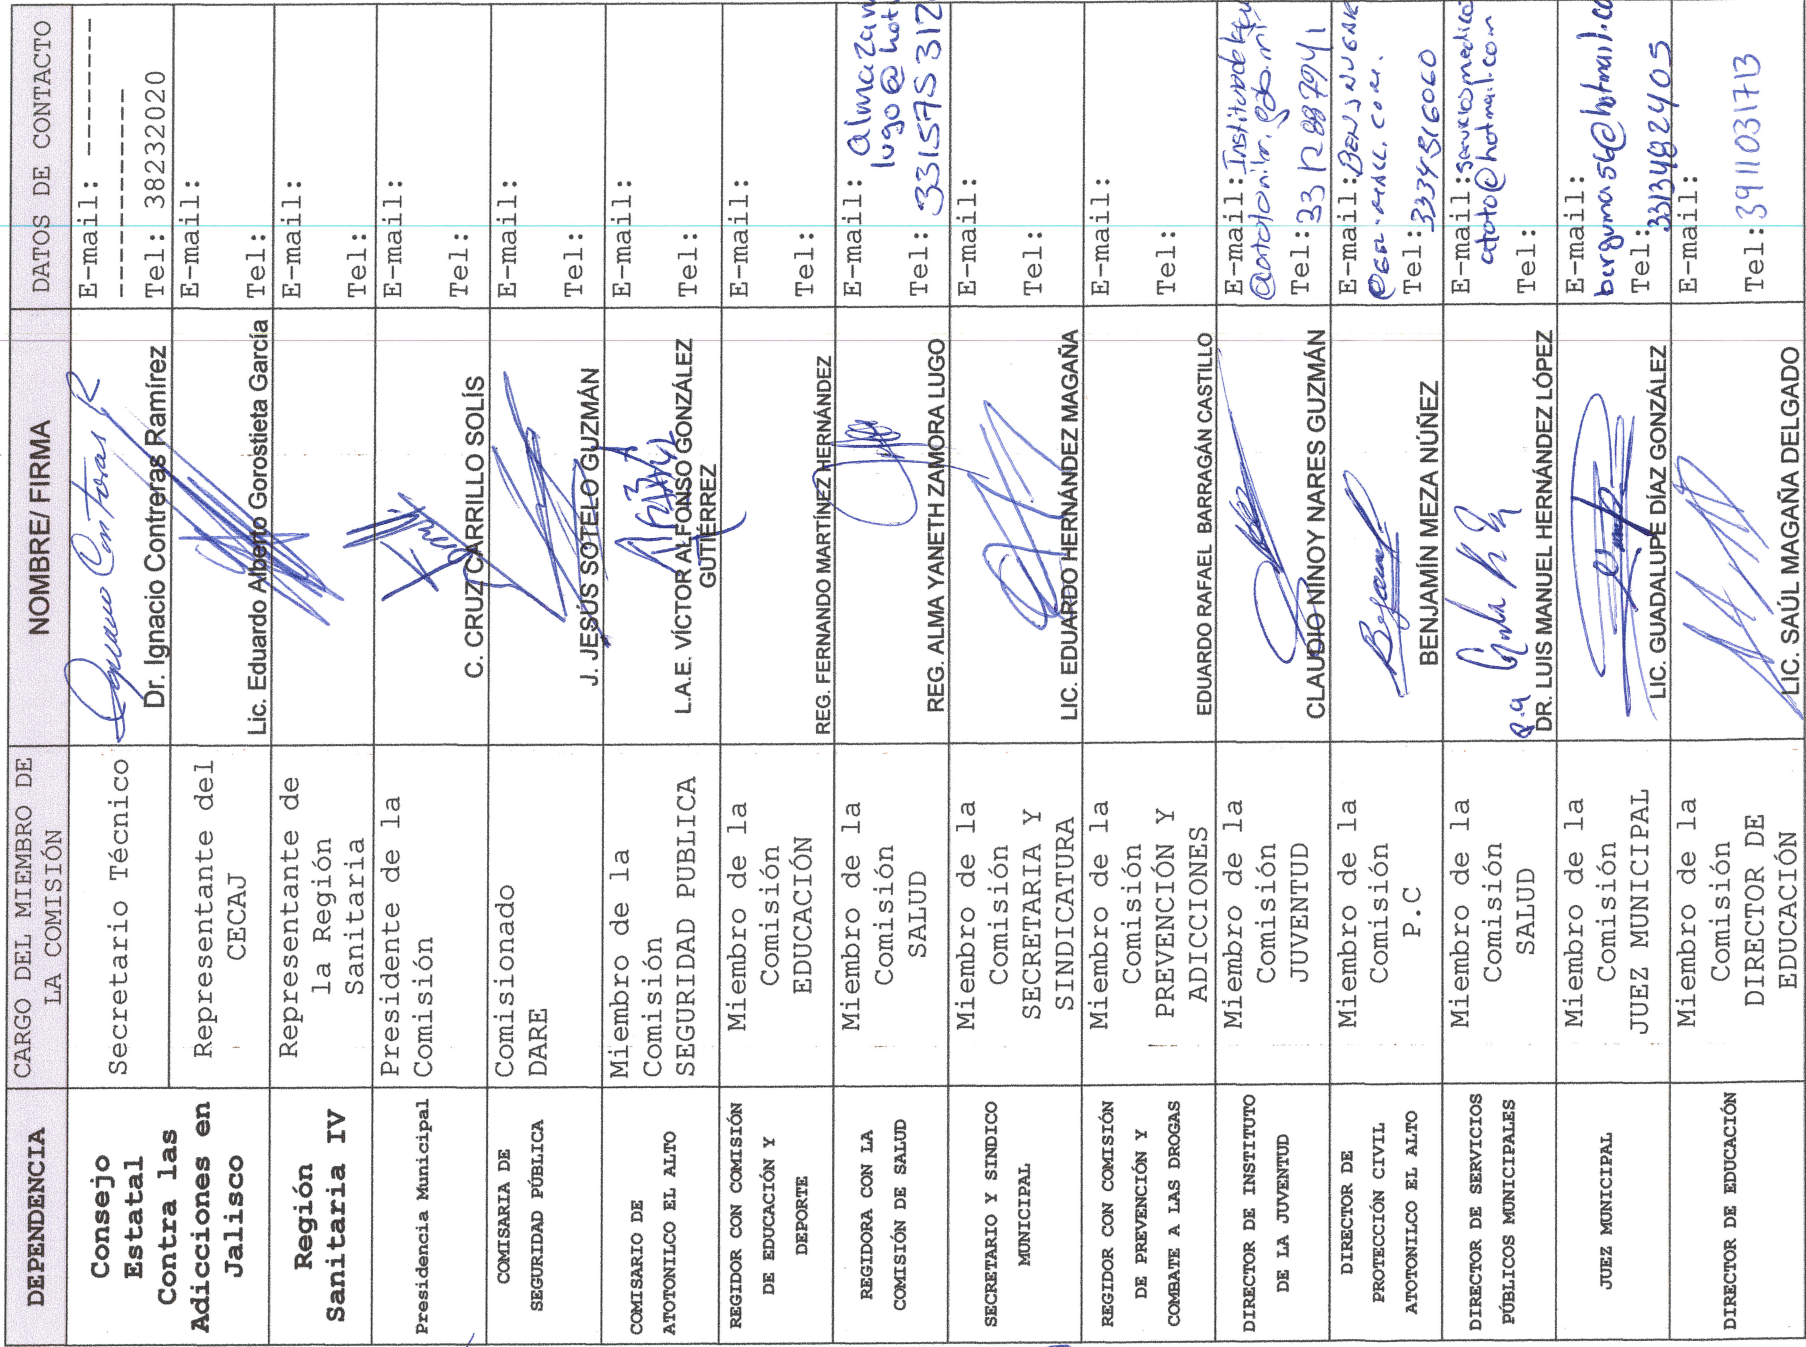 DEPENDENCIA
CARGO DEL MIEMBRO DE
LA COMISIÓN
NOMBRE/ FIRMA
DATOS DE CONTACTO
Consejo
Estatal
Contra las
Adicciones en
Jalisco
Secretario Técnico
Dr. Ignacio Contreras Ramírez
E-mail: -----------
-------------
Tel: 3823232020
Representante del
CECAJ
Lic. Eduardo Alberto Gorostieta García
E-mail:
Tel:
Región
Sanitaria IV
Representante de
la Región
Sanitaria
E-mail:
Tel:
Presidencia Municipal
Presidente de la
Comisión
C. CRUZ CARRILLO SOLÍS
E-mail:
Tel:
COMISARIA DE
SEGURIDAD PÚBLICA
Comisionado
DARE
J. JESÚS SOTELO GUZMÁN
E-mail:
Tel:
COMISARIO DE
ATOTONILCO EL ALTO
Miembro de la
Comisión
SEGURIDAD PUBLICA
L.A.E. VÍCTOR ALFONSO GONZÁLEZ
GUTIÉRREZ
E-mail:
Tel:
REGIDOR CON COMISIÓN
DE EDUCACIÓN Y
DEPORTE
Miembro de la
Comisión
EDUCACIÓN
REG. FERNANDO MARTÍNEZ HERNÁNDEZ
E-mail:
Tel:
REGIDORA CON LA
COMISIÓN DE SALUD
Miembro de la
Comisión
SALUD
REG. ALMA YANETH ZAMORA LUGO
E-mail: almazam
lugo@hot
Tel: 331575312
SECRETARIO Y SINDICO
MUNICIPAL
Miembro de la
Comisión
SECRETARIA Y
SINDICATURA
LIC. EDUARDO HERNÁNDEZ MAGAÑA
E-mail:
Tel:
REGIDOR CON COMISIÓN
DE PREVENCIÓN Y
COMBATE A LAS DROGAS
Miembro de la
Comisión
PREVENCIÓN Y
ADICCIONES
EDUARDO RAFAEL BARRAGÁN CASTILLO
E-mail:
Tel:
DIRECTOR DE INSTITUTO
DE LA JUVENTUD
Miembro de la
Comisión
JUVENTUD
CLAUDIO NINOY NARES GUZMÁN
E-mail:
Tel: 3312887941
DIRECTOR DE
PROTECCIÓN CIVIL
ATOTONILCO EL ALTO
Miembro de la
Comisión
P.C
BENJAMÍN MEZA NÚÑEZ
E-mail:
Tel: 3334516060
DIRECTOR DE SERVICIOS
PÚBLICOS MUNICIPALES
Miembro de la
Comisión
SALUD
DR. LUIS MANUEL HERNÁNDEZ LÓPEZ
E-mail: serviciosmedico
atoto@hotmail.com
Tel:
JUEZ MUNICIPAL
Miembro de la
Comisión
JUEZ MUNICIPAL
LIC. GUADALUPE DÍAZ GONZÁLEZ
E-mail:
Tel: 3313482405
DIRECTOR DE EDUCACIÓN
Miembro de la
Comisión
DIRECTOR DE
EDUCACIÓN
LIC. SAÚL MAGAÑA DELGADO
E-mail:
Tel: 3911031713